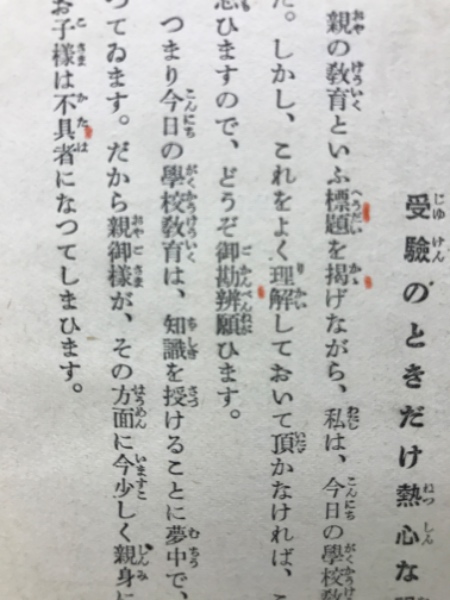 受驗のときだけ熱心な
親の敎育といふ標題を揭げながら、私は、今日の學校敎
た。しかし、これをよく理解しておいて頂かなければ、こ
思ひますので、どうぞ御勘辨願ひます。
つまり今日の學校敎育は、知識を授けることに夢中で、
つてゐます。だから親御樣が、その方面に今少しく親身に
お子樣は不具者になつてしまひます。